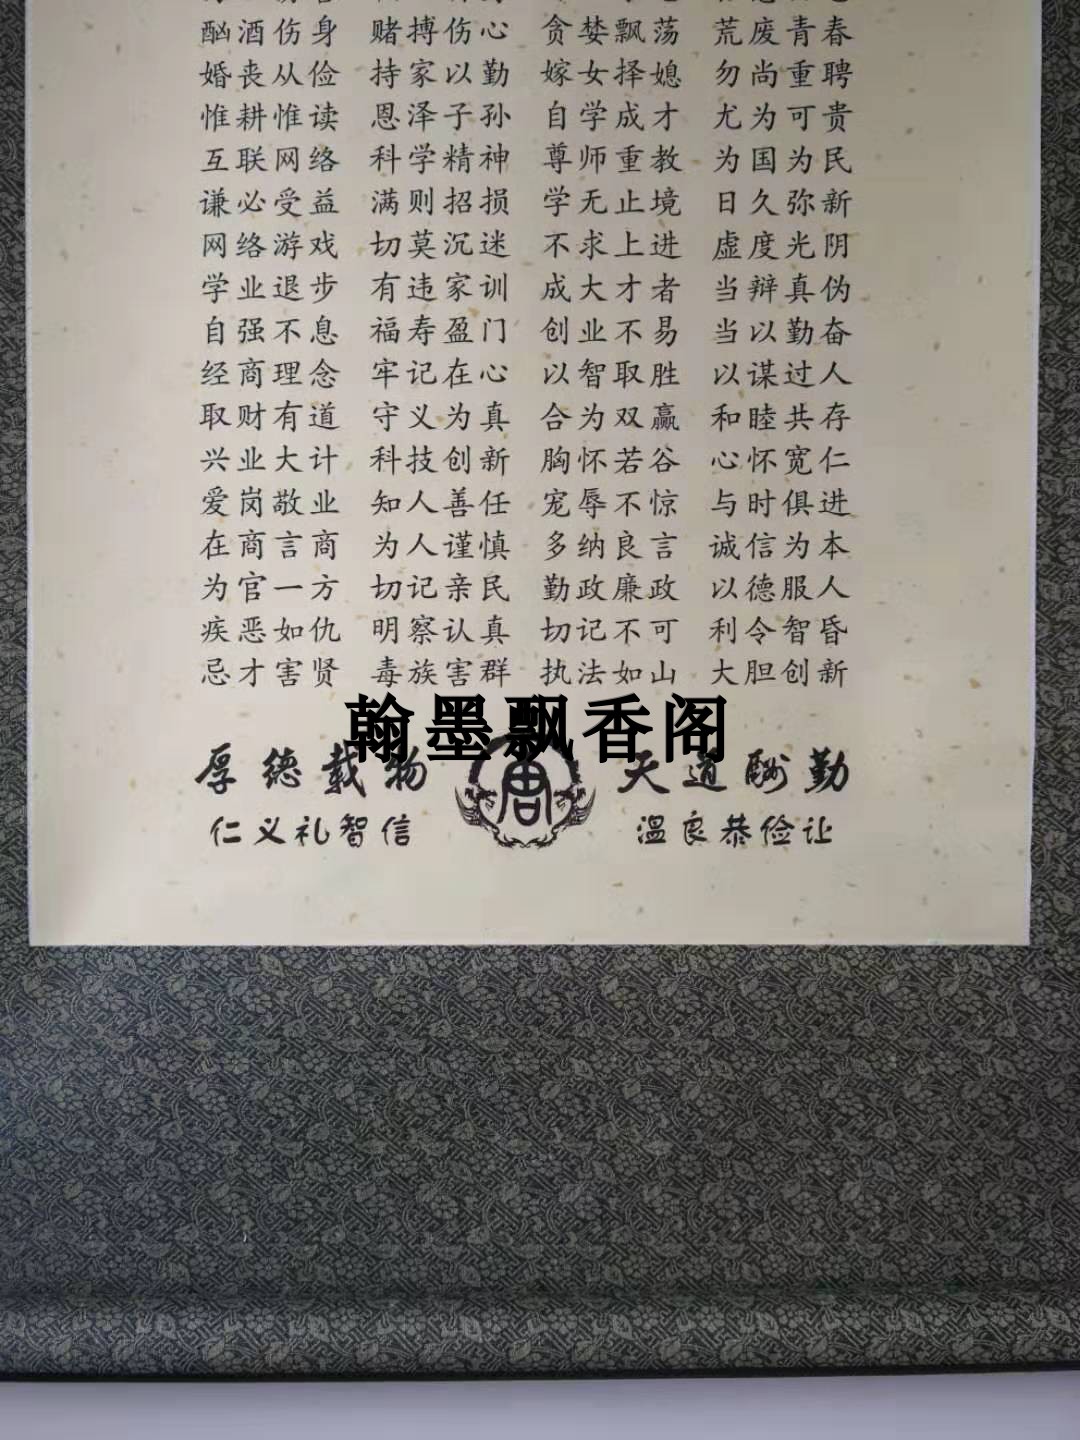 酗酒伤身 赌搏伤心 贪婪飘荡 荒废青春
婚丧从俭 持家以勤 嫁女择媳 勿尚重聘
惟耕惟读 恩泽子孙 自学成才 尤为可贵
互联网络 科学精神 尊师重教 为国为民
谦必受益 满则招损 学无止境 日久弥新
网络游戏 切莫沉迷 不求上进 虚度光阴
学业退步 有违家训 成大才者 当辩真伪
自强不息 福寿盈门 创业不易 当以勤奋
经商理念 牢记在心 以智取胜 以谋过人
取财有道 守义为真 合为双赢 和睦共存
兴业大计 科技创新 胸怀若谷 心怀宽仁
爱岗敬业 知人善任 宠辱不惊 与时俱进
在商言商 为人谨慎 多纳良言 诚信为本
为官一方 切记亲民 勤政廉政 以德服人
疾恶如仇 明察认真 切记不可 利令智昏
忌才害贤 毒族害群 执法如山 大胆创新
翰墨飘香阁
厚德载物 唐 天道酬勤
仁义礼智信 温良恭俭让